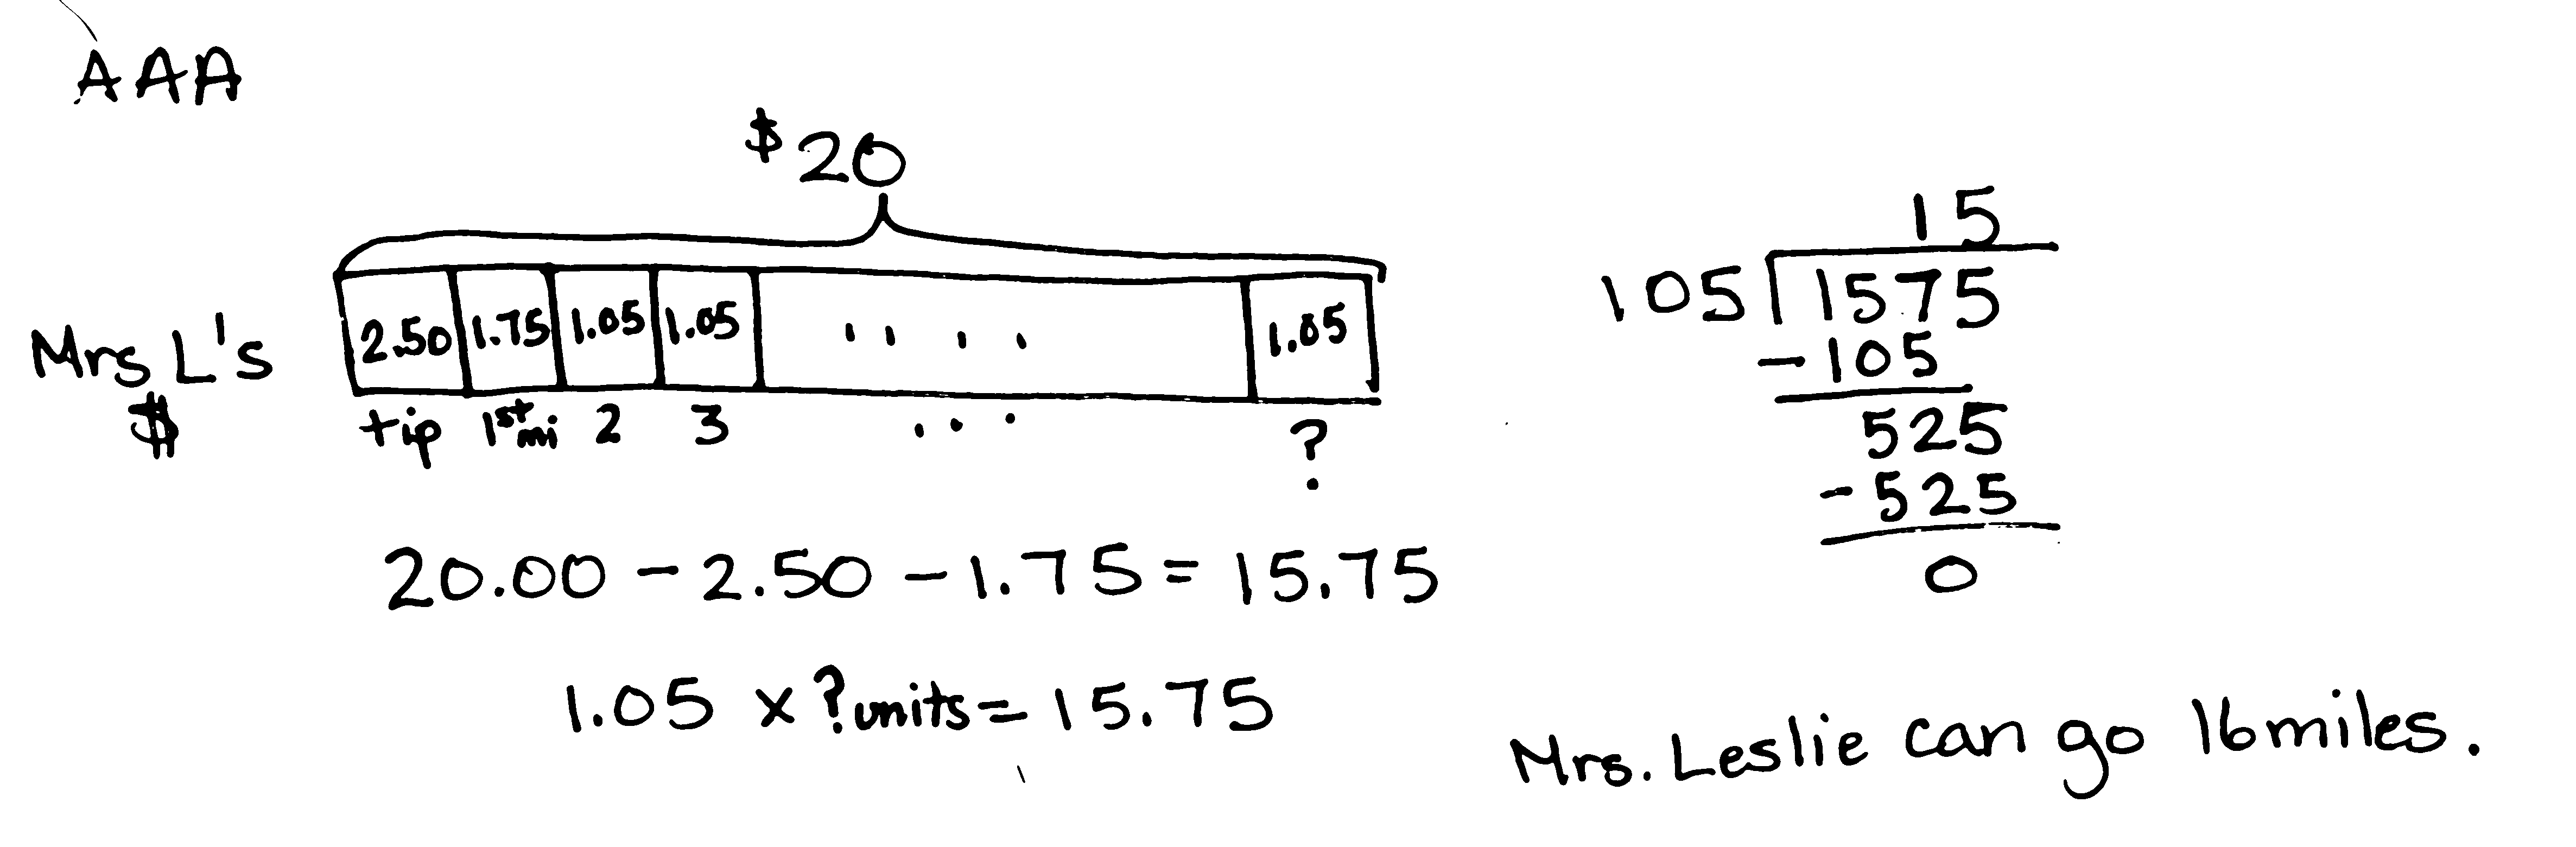 AAA
$20
Mrs L's
$
2.50 1.75 1.05 1.05 .... 1.05
tip 1st mi 2 3 ... ?
20.00 - 2.50 - 1.75 = 15.75
1.05 x ? units = 15.75
15
105 1575
- 105
525
- 525
0
Mrs. Leslie can go 16 miles.